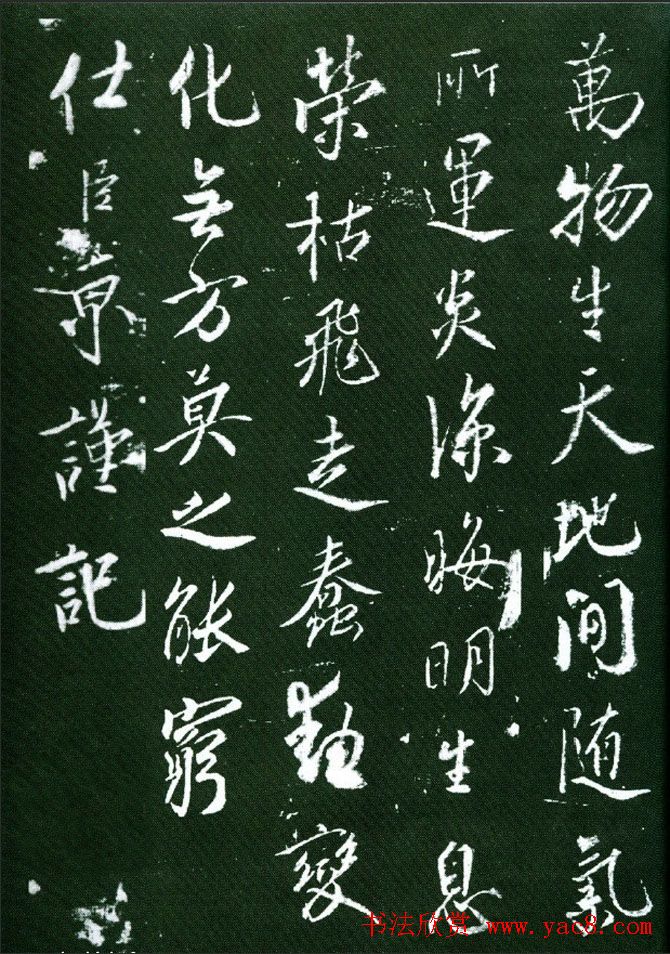 萬物生天地間随氣
所運炎凉晦明生息
榮枯飛走蠢動變
化無方莫之能窮
仕臣京謹記
书法欣赏 www.yac8.com